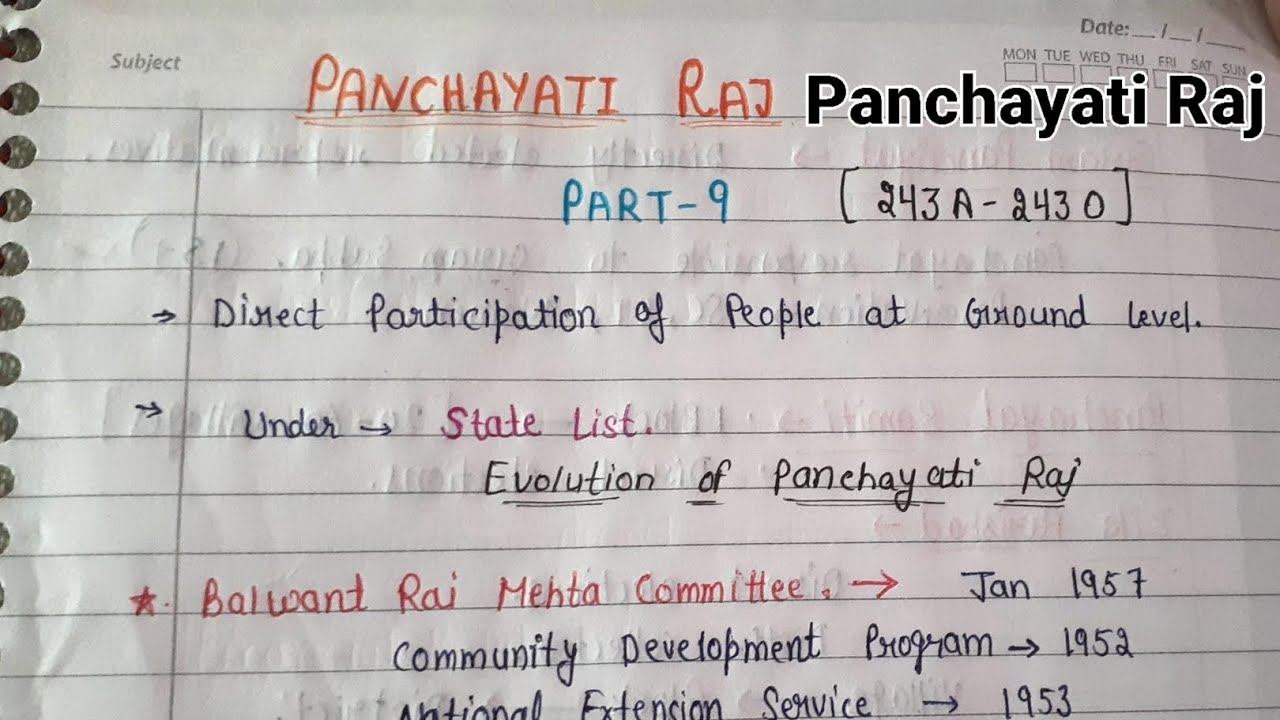 Date:__/__/___
Subject
MON TUE WED THU FRI SAT SUN
PANCHAYATI RAJ Panchayati Raj
PART-9 [243A-243O]
→ Direct Participation of People at Ground Level.
→ Under → State List.
Evolution of Panchayati Raj
★. Balwant Rai Mehta Committee. → Jan 1957
Community Development Program → 1952
National Extension Service → 1953